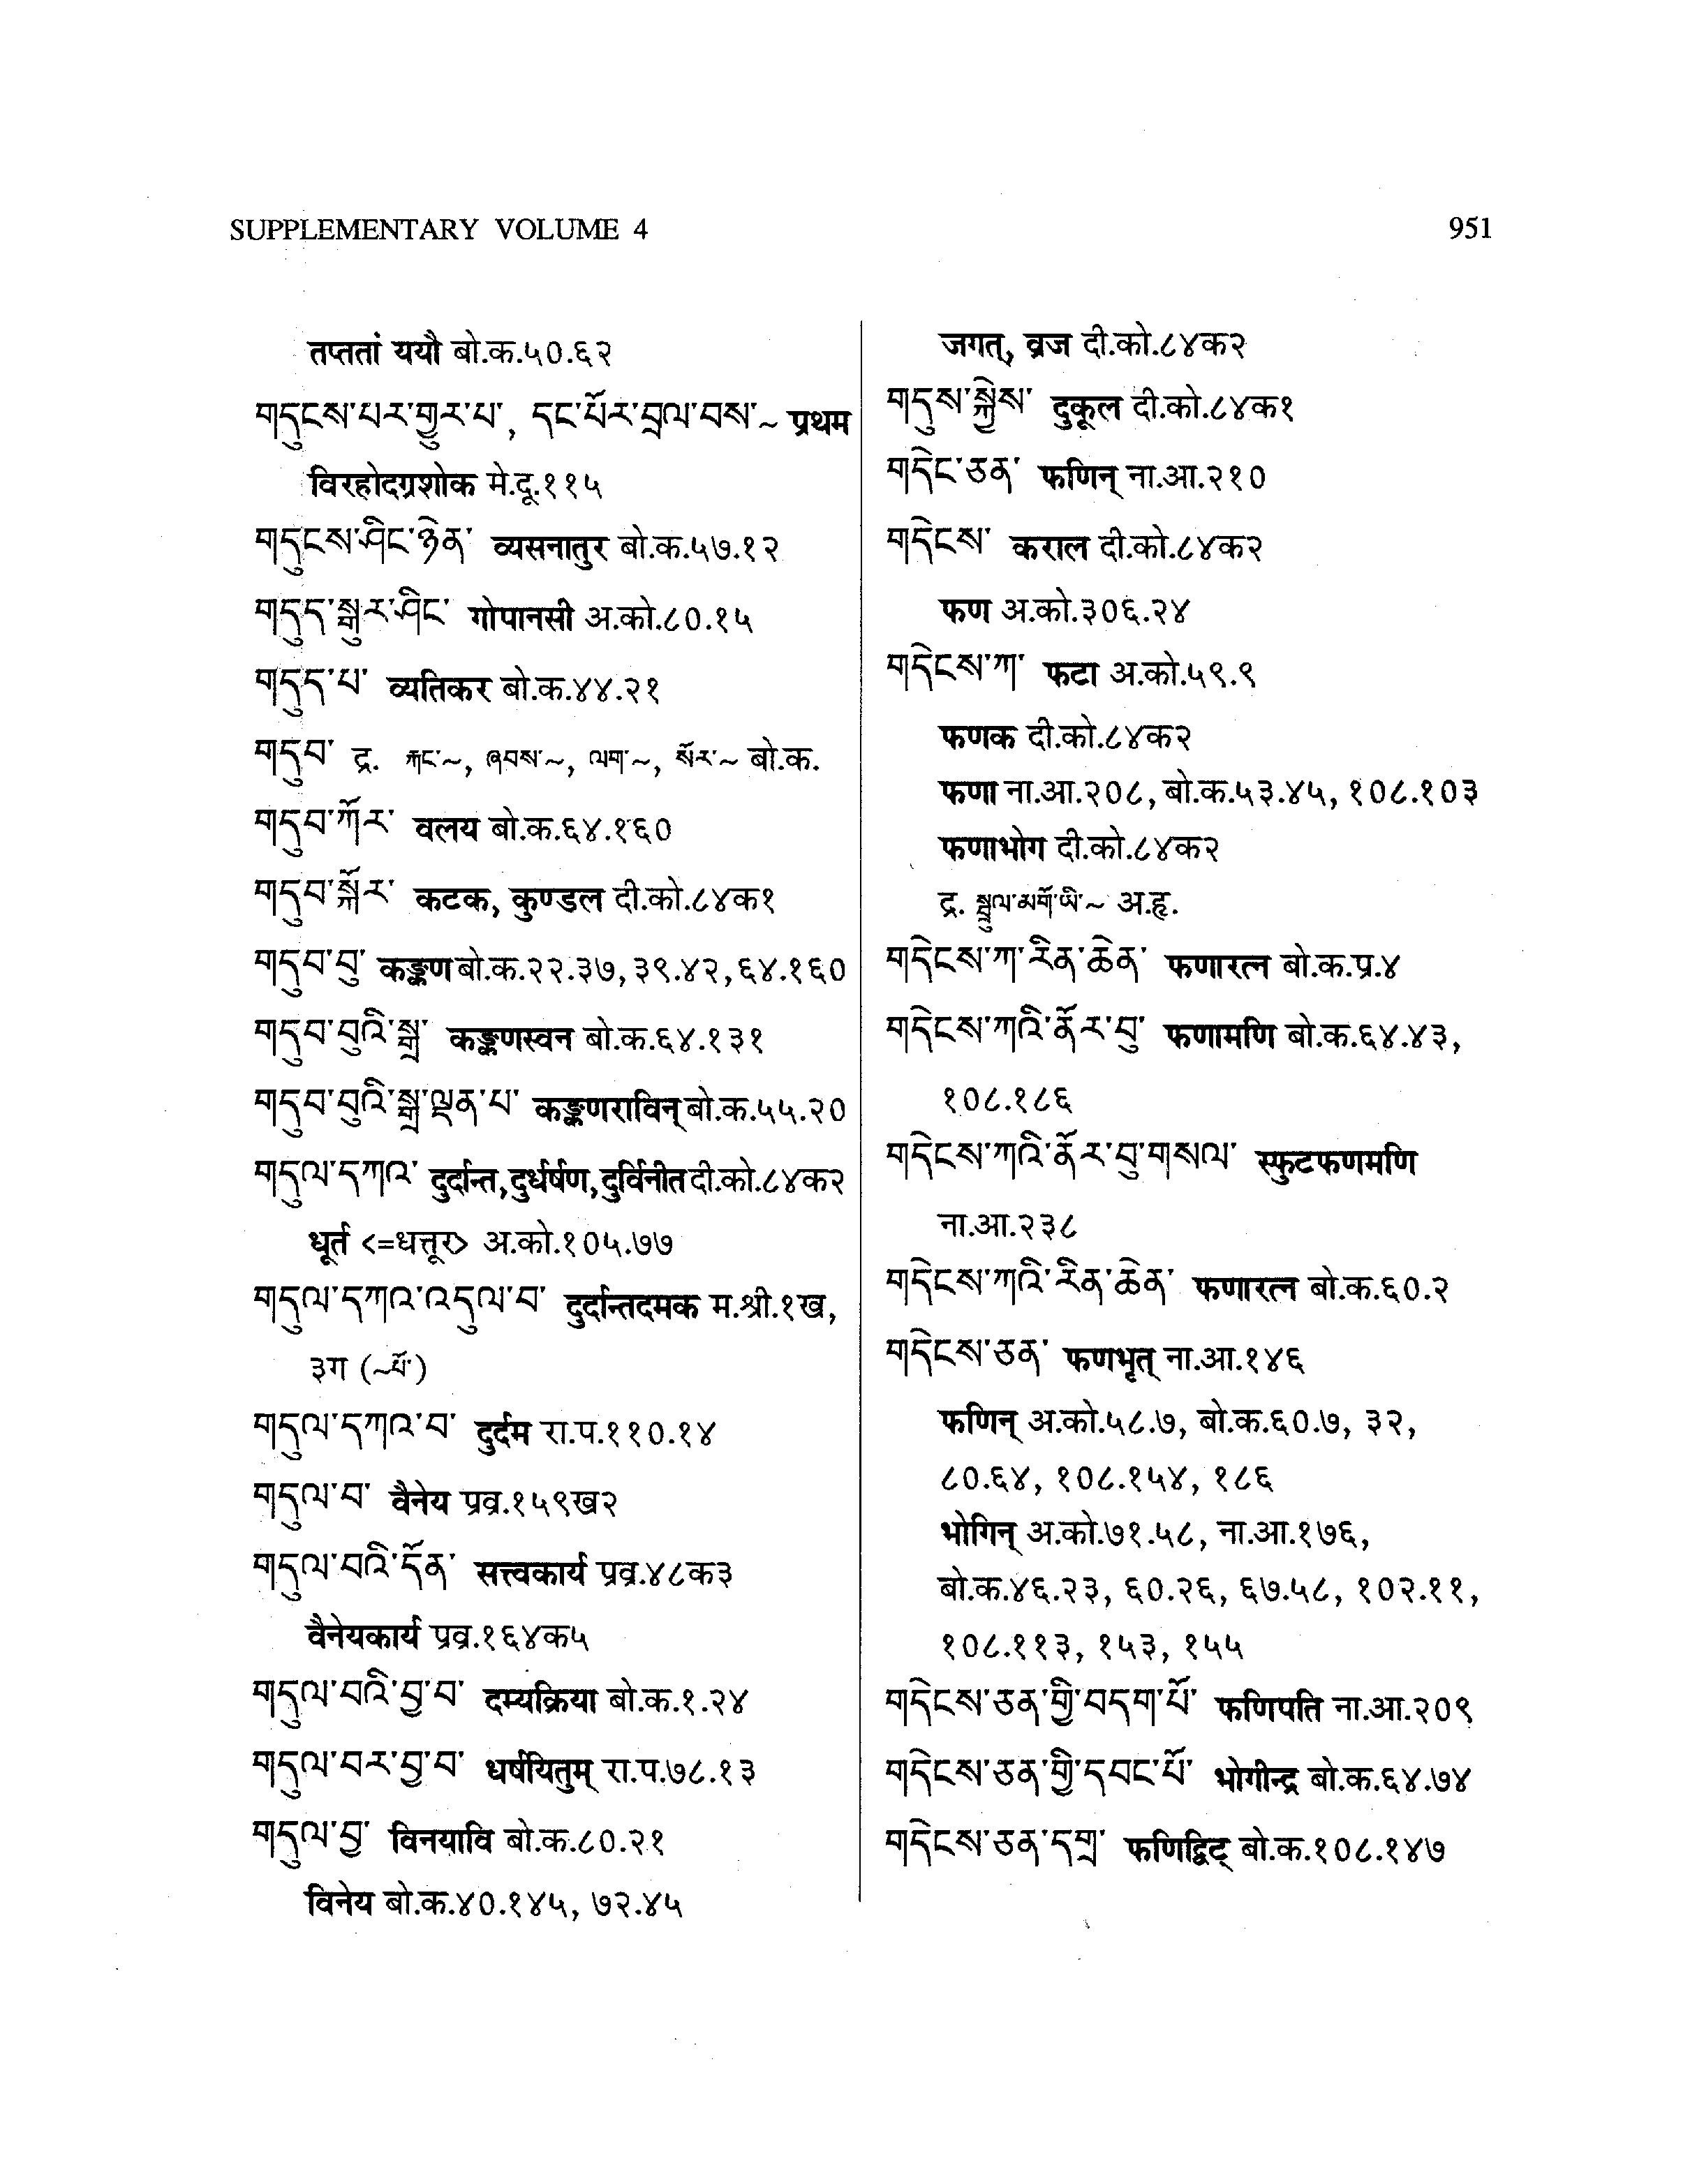 SUPPLEMENTARY VOLUME 4
951
तप्ततां ययौ बो.क.५०.६२
གདུངས་པར་གྱུར་པ་, དང་པོར་བྲལ་བས་~ प्रथम
विरहोदग्रशोक मे.दू.११५
གདུངས་ཤིང་ཉེན་ व्यसनातुर बो.क.५७.१२
གདུད་སྒུར་ཤིང་ गोपानसी अ.को.८०.१५
གདུད་པ་ व्यतिकर बो.क.४४.२१
གདུབ་ द्र. རྐང་~, ཞབས་~, ལག་~, སོར་~ बो.क.
གདུབ་ཀོར་ वलय बो.क.६४.१६०
གདུབ་སྐོར་ कटक, कुण्डल दी.को.८४क१
གདུབ་བུ་ कङ्कण बो.क.२२.३७, ३९.४२, ६४.१६०
གདུབ་བུའི་སྒྲ་ कङ्कणस्वन बो.क.६४.१३१
གདུབ་བུའི་སྒྲ་ལྡན་པ་ कङ्कणराविन् बो.क.५५.२०
གདུལ་དཀའ་ दुर्दान्त, दुर्धर्षण, दुर्विनीत दी.को.८४क२
धूर्त <=धत्तूर> अ.को.१०५.७७
གདུལ་དཀའ་འདུལ་བ་ दुर्दान्तदमक म.श्री.१ख,
३ग (~པོ་)
གདུལ་དཀའ་བ་ दुर्दम रा.प.११०.१४
གདུལ་བ་ वैनेय प्रव्र.१५९ख२
གདུལ་བའི་དོན་ सत्त्वकार्य प्रव्र.४८क३
वैनेयकार्य प्रव्र.१६४क५
གདུལ་བའི་བྱ་བ་ दम्यक्रिया बो.क.१.२४
གདུལ་བར་བྱ་བ་ धर्षयितुम् रा.प.७८.१३
གདུལ་བྱ་ विनयावि बो.क.८०.२१
विनेय बो.क.४०.१४५, ७२.४५
जगत्, व्रज दी.को.८४क२
གདུས་སྐྱེས་ दुकूल दी.को.८४क१
གདེང་ཅན་ फणिन् ना.आ.२१०
གདེངས་ कराल दी.को.८४क२
फण अ.को.३०६.२४
གདེངས་ཀ་ फटा अ.को.५९.९
फणक दी.को.८४क२
फणा ना.आ.२०८, बो.क.५३.४५, १०८.१०३
फणाभोग दी.को.८४क२
द्र. སྦྲུལ་མགོ་ཡི་~ अ.हृ.
གདེངས་ཀ་རིན་ཆེན་ फणारत्न बो.क.प्र.४
གདེངས་ཀའི་ནོར་བུ་ फणामणि बो.क.६४.४३,
१०८.१८६
གདེངས་ཀའི་ནོར་བུ་གསལ་ स्फुटफणमणि
ना.आ.२३८
གདེངས་ཀའི་རིན་ཆེན་ फणारत्न बो.क.६०.२
གདེངས་ཅན་ फणभृत् ना.आ.१४६
फणिन् अ.को.५८.७, बो.क.६०.७, ३२,
८०.६४, १०८.१५४, १८६
भोगिन् अ.को.७१.५८, ना.आ.१७६,
बो.क.४६.२३, ६०.२६, ६७.५८, १०२.११,
१०८.११३, १५३, १५५
གདེངས་ཅན་གྱི་བདག་པོ་ फणिपति ना.आ.२०९
གདེངས་ཅན་གྱི་དབང་པོ་ भोगीन्द्र बो.क.६४.७४
གདེངས་ཅན་དགྲ་ फणिद्विट् बो.क.१०८.१४७